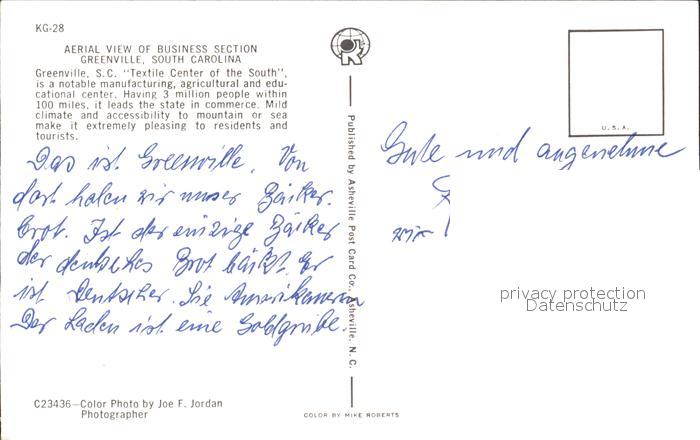 KG-28
AERIAL VIEW OF BUSINESS SECTION
GREENVILLE, SOUTH CAROLINA
Greenville, S.C. "Textile Center of the South",
is a notable manufacturing, agricultural and edu-
cational center. Having 3 million people within
100 miles, it leads the state in commerce. Mild
climate and accessibility to mountain or sea
make it extremely pleasing to residents and
tourists.
Das ist Greenville. Von
dort holen wir unser Bäcker.
brot. Ist der einzige Bäcker
der deutsches Brot bäckt. Er
ist Deutscher. Sie Amerikanerin
Der Laden ist eine Goldgrube.
C23436—Color Photo by Joe F. Jordan
Photographer
Published by Asheville Post Card Co., Asheville, N. C.
COLOR BY MIKE ROBERTS
U.S.A.
Gute und angenehme
wir
privacy protection
Datenschutz